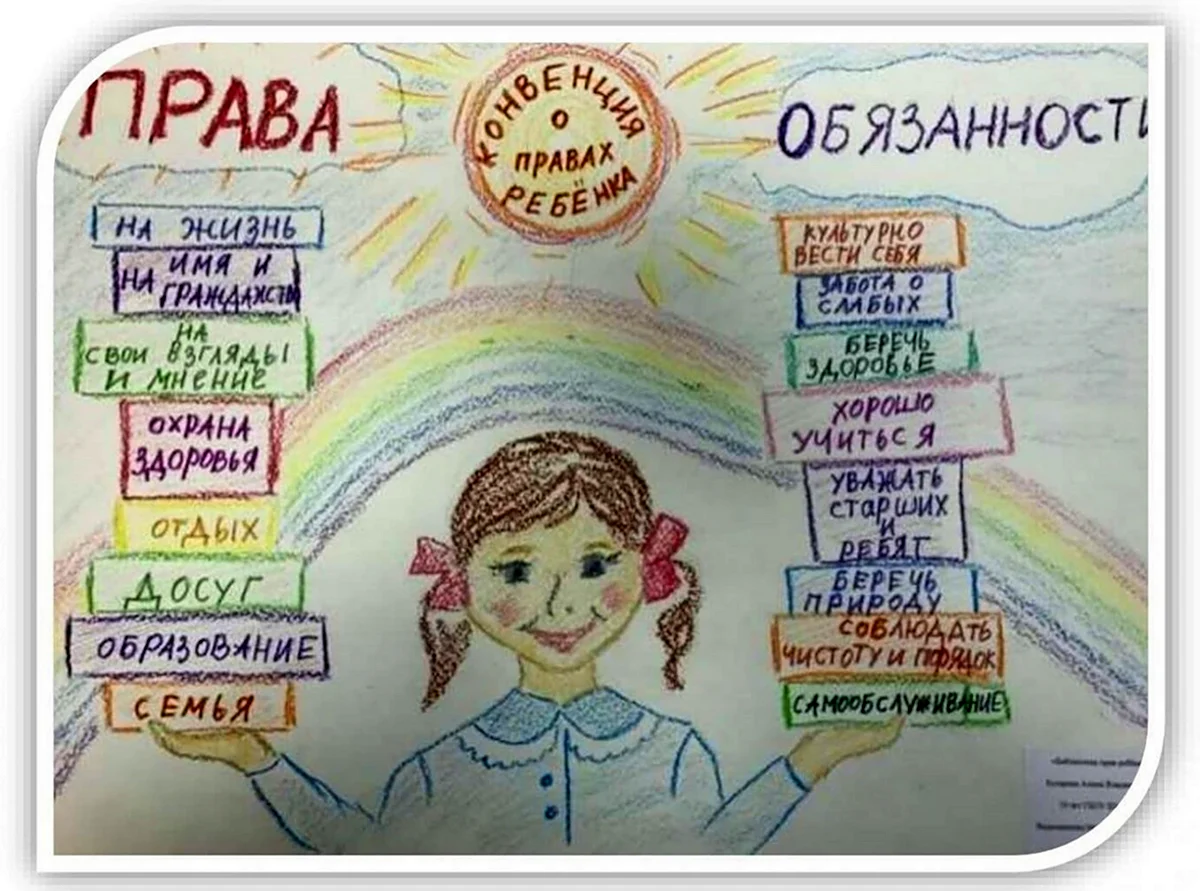 ПРАВА
КОНВЕНЦИЯ
О
ПРАВАХ
РЕБЁНКА
ОБЯЗАННОСТИ
НА ЖИЗНЬ
НА ИМЯ И
ГРАЖДАНСТВ
НА
СВОИ ВЗГЛЯДЫ
И МНЕНИЕ
ОХРАНА
ЗДОРОВЬЯ
ОТДЫХ
ДОСУГ
ОБРАЗОВАНИЕ
СЕМЬЯ
КУЛЬТУРНО
ВЕСТИ СЕБЯ
ЗАБОТА О
СЛАБЫХ
БЕРЕЧЬ
ЗДОРОВЬЕ
ХОРОШО
УЧИТЬСЯ
УВАЖАТЬ
СТАРШИХ
И
РЕБЯТ
БЕРЕЧЬ
ПРИРОДУ
СОБЛЮДАТЬ
ЧИСТОТУ И ПОРЯДОК
САМООБСЛУЖИВАНИЕ